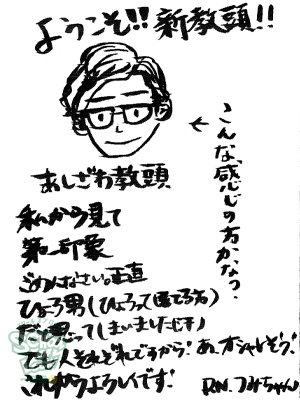 ようこそ!!新教頭!!
こんな、感じの方かなっ?
あしざわ教頭
私から見て
第一印象
ごめんなさい。正直
ひょろ男(ひょろって
だと思ってしまいました(汗)
でも人それぞれですから! あ、オシャレそう!
これからよろしくです!
R.N. つみちゃん